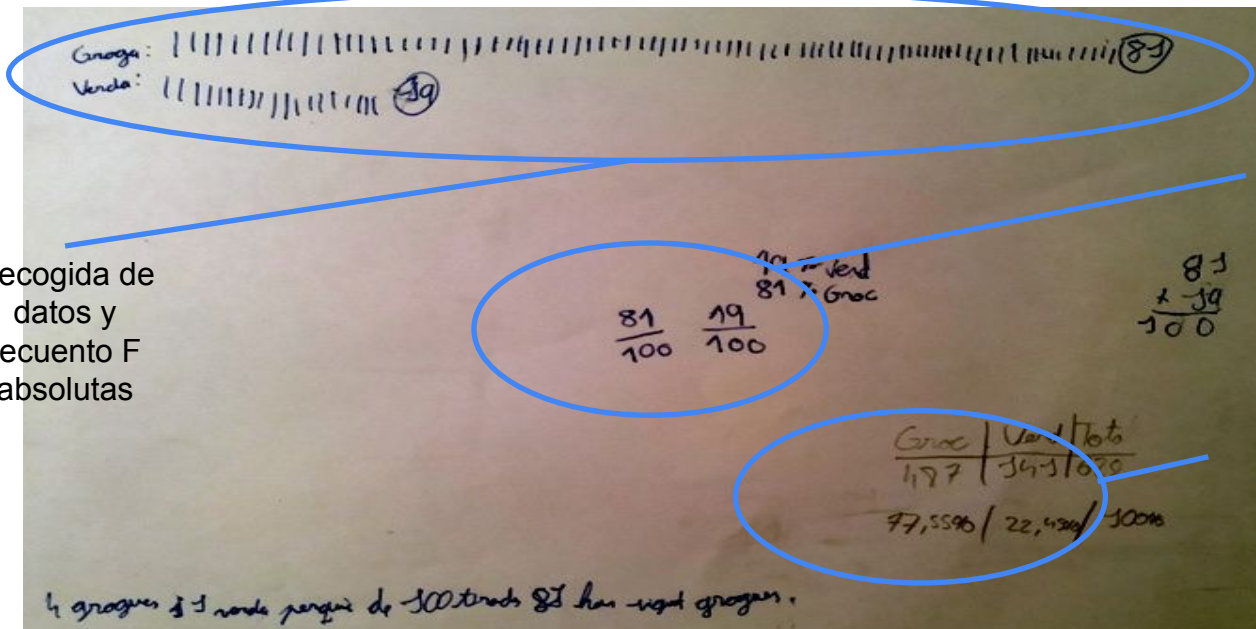 Groga: 81
Verda: 19
ecogida de
datos y
ecuento F
absolutas
19 % Verd
81 % Groc
81 19
100 100
81
+ 19
100
Groc | Verd | Tots
487 | 141 |
77,55% / 22,45% / 100%
4 grogues i 1 verda perquè de 100 tirads 81 han sigut grogues.